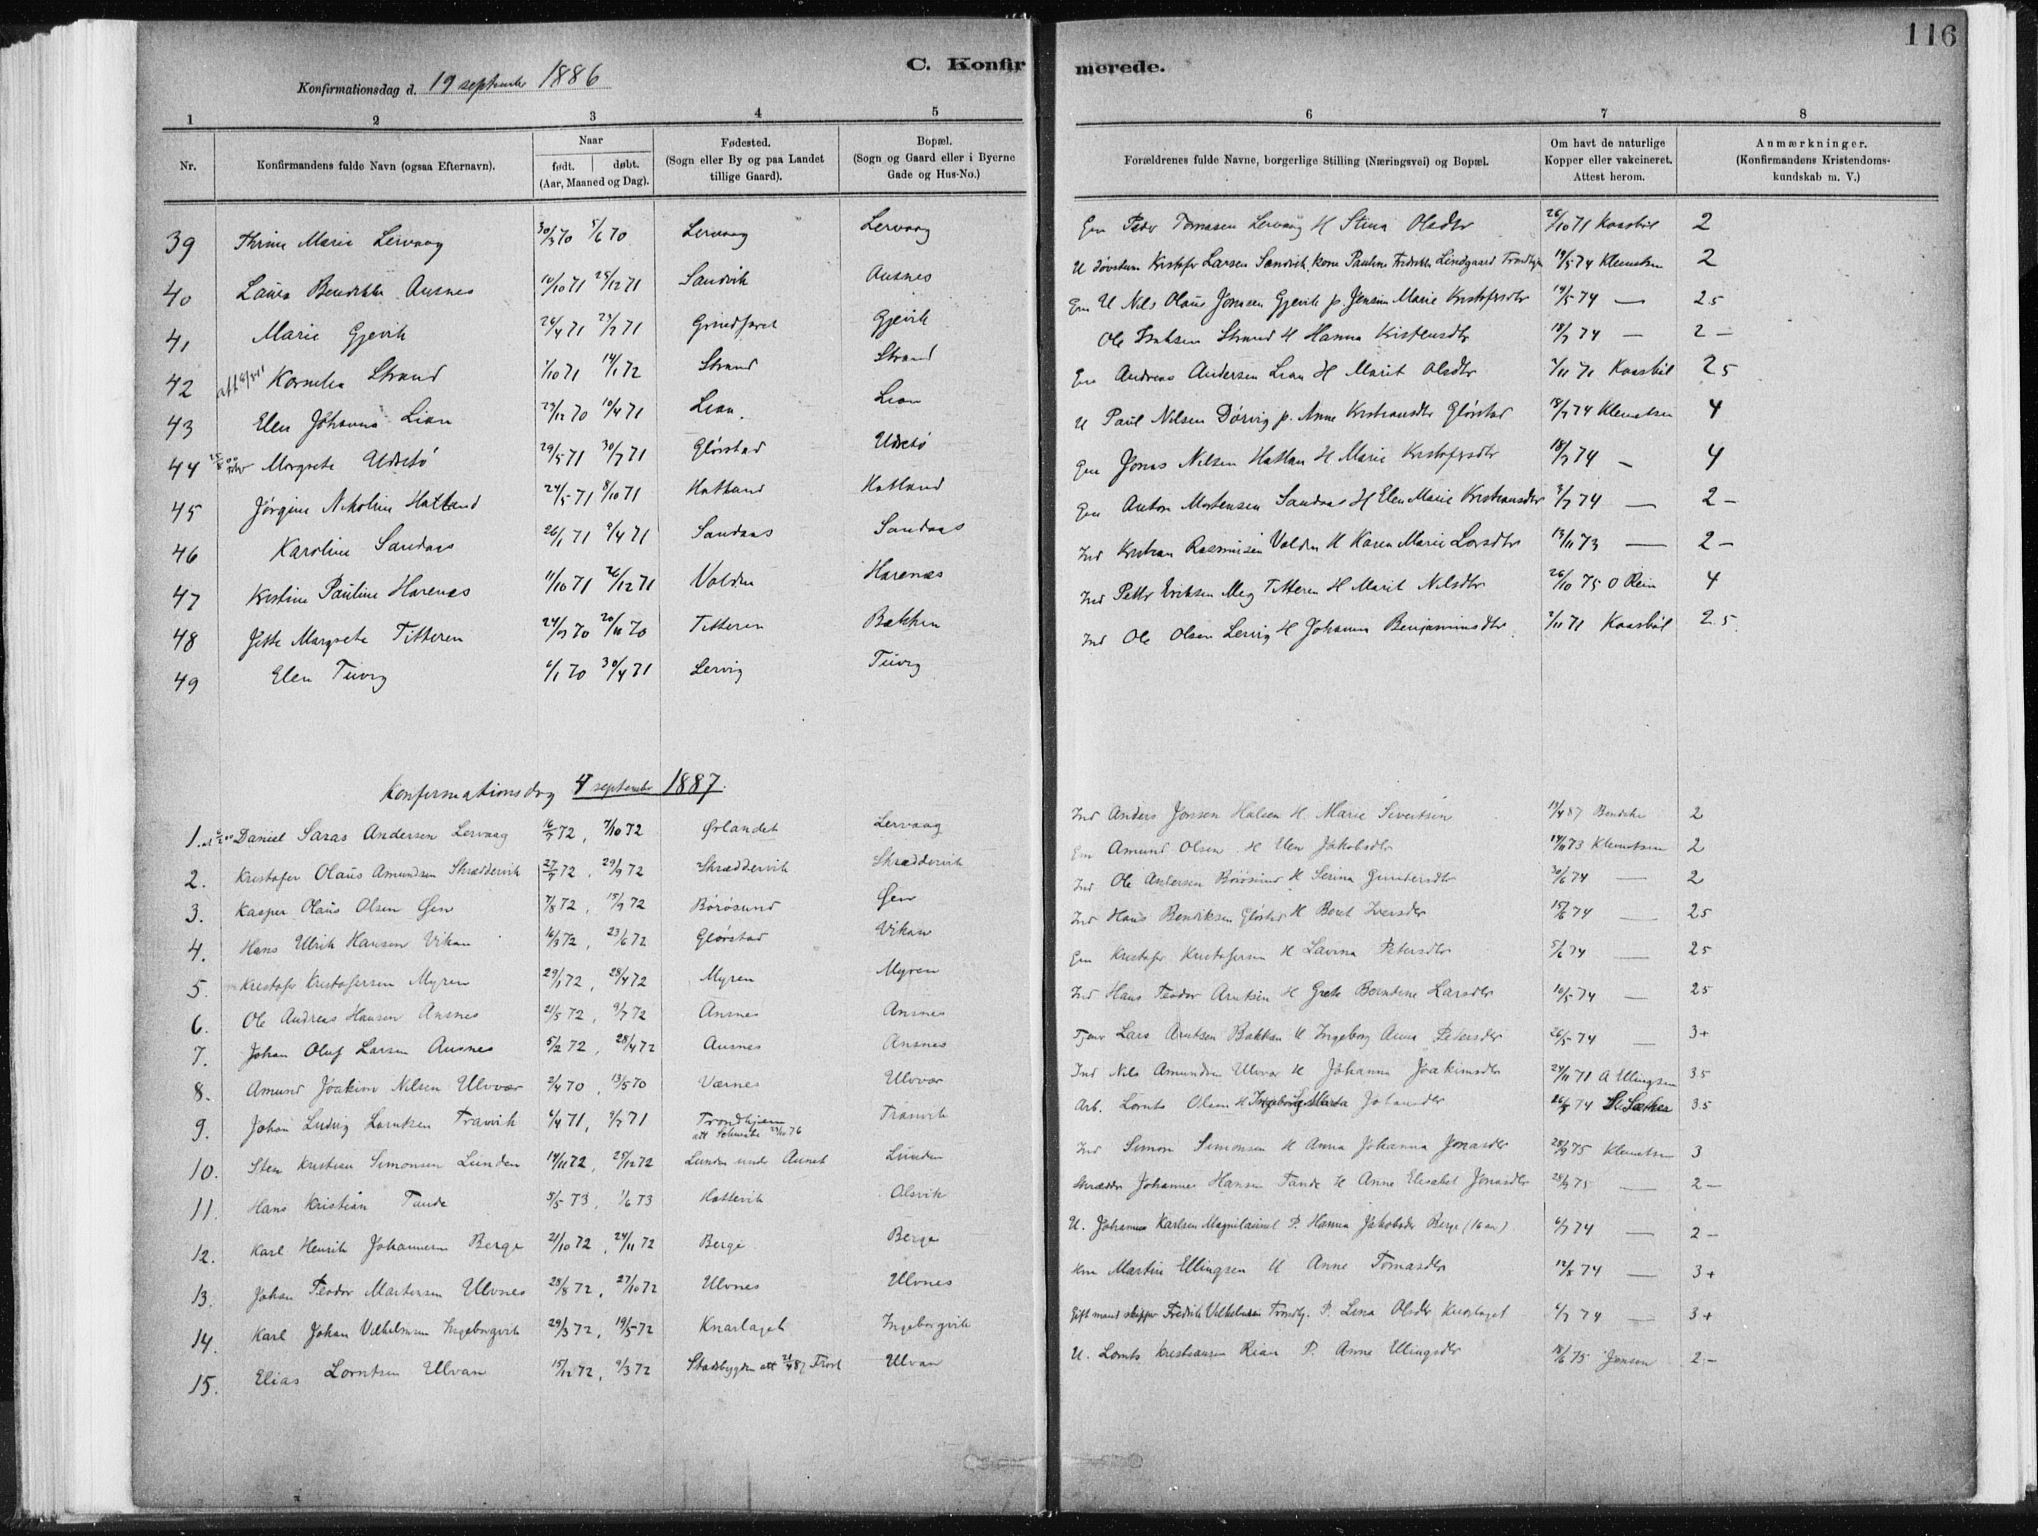 116
C. Konfirmerede.
Konfirmationsdag d. 19 september 1886
1 2 3 4 5 6 7 8
Nr. Konfirmandens fulde Navn (ogsaa Efternavn). Naar født. døbt. (Aar, Maaned og Dag). Fødested. (Sogn eller By og paa Landet tillige Gaard). Bopæl. (Sogn og Gaard eller i Byerne Gade og Hus-No.) Forældrenes fulde Navne, borgerlige Stilling (Næringsvei) og Bopæl. Om havt de naturlige Kopper eller vakcineret. Attest herom. Anmærkninger. (Konfirmandens Kristendoms-kundskab m. V.)
39 Thrine Marie Lervaag 30/3 70 5/6 70 Lervaag Lervaag Em Peder Tomasen Lervaag H Stina Olsdtr 26/10 71 Kaasbøl 2
40 Laura Bendikke Ausnes 10/10 71 25/12 71 Sandvik Ausnes U Kristofer Larsen Sandvik Pauline Lindgaard 14/5 74 Klemetsen 2
41 Marie Gjevik 26/4 71 23/7 71 Grindfaret Gjevik Em U Nils Olaus Jonsen Gjevik p. Jensine Marie Kristofersdtr 14/5 74 — 2.5
42 Kornelia Strand 1/10 71 14/1 72 Strand Strand Ole Isaksen Strand H Hanna Kristensdtr 18/7 74 — 2 —
43 Elen Johanna Lian 23/12 70 10/4 71 Lian. Lian Em Andreas Andersen Lian H Marit Olsdtr 2/11 71 Kaasbøl 2 5
44 Margrete Udsetø 29/5 71 30/7 71 Glørstad Udsetø U Paul Nilsen Dørvig p. Anne Kristiansdtr Glørstad 18/7 74 Klemetsen 4
45 Jørgine Nikoline Hatland 24/5 71 8/10 71 Hatland Hatland Em Jonas Nilsen Hatlan H Marie Kristofersdtr 18/7 74 — 4
46 Karoline Sandaas 26/1 71 9/4 71 Sandaas Sandaas Em Anton Mortensen Sandaas H Elen Marie Kristiansdtr 3/7 74 — 2 —
47 Kristine Pauline Harenæs 11/10 71 26/12 71 Valden Harenæs Ind Kristian Rasmussen Valden H Karen Marie Larsdtr 13/11 73 — 2 —
48 Jette Margrete Titteren 24/9 70 20/11 70 Titteren Bakken Ind Petter Eriksen Titteren H Marit Nilsdtr 26/10 75 O Rein 4
49 Elen Tuvig 6/1 70 30/4 71 Lervig Tuvig Ind Ole Olsen Lervig H Johanna Benjaminsdtr 2/11 71 Kaasbøl 2.5
Konfirmationsdag 4 september 1887.
1. Daniel Saras Andersen Lervaag 16/7 72, 7/10 72 Ørlandet Lervaag Ind Anders Jonsen Halsen H. Marie Sivertsen 19/4 87 2
2. Kristofer Olaus Amundsen Skræddervik 27/7 72, 29/9 72 Skræddervik Skræddervik Em Amund Olsen H Elen Jakobsdtr 14/11 73 Klemetsen 2
3. Kasper Olaus Olsen Øen 7/8 72, 15/9 72 Børøsund Øen Ind Ole Andersen Børøsund H Serina Gundersdtr 30/6 74 — 2
4. Hans Ulrik Hansen Vikan 16/3 72, 23/6 72 Glørstad Vikan Ind Hans Bendiksen Glørstad H Beret Iversdtr 15/6 74 — 2 5
5. Kristofer Kristofersen Myren 29/1 72, 28/4 72 Myren Myren Em Kristofer Kristofersen H Lavina Petersdtr 5/6 74 — 2 5
6. Ole Andreas Hansen Ansnes 21/5 72, 9/7 72 Ansnes Ansnes Ind Hans Teodor Arntsen H Grete Berntine Larsdtr 10/5 74 — 2 5
7. Johan Oluf Larsen Ausnes 5/2 72, 28/4 72 Ausnes Ansnes Tjener Lars Arntsen Bakkan H Ingeborg Anna Petersdtr 26/5 74 — 3+
8. Amund Joakim Nilsen Ulvvær 2/4 70, 13/5 70 Værnes Ulvvær Ind Nils Amundsen Ulvvær H Johanna Joakimsdtr 24/11 71 A Ellingsen 3 5
9. Johan Ludvig Lorntsen Tranvik 6/4 71, 9/7 71 Trondhjem Tranvik Arb. Lornts Olsen H Ingeborg Marta Johansdtr 26/5 74 3 5
10. Sten Kristian Simonsen Lunden 14/11 72, 25/12 72 Lunden under Aunet Lunden Ind Simon Simonsen H Anna Johanna Jonasdtr 28/9 75 Klemetsen 3
11. Hans Kristian Tande 5/5 73, 1/6 73 Hattevik Olsvik Skrædder Johannes Hansen Tande H Anne Elisabet Jonasdtr 28/9 75 — 2 —
12. Karl Henrik Johannesen Berge 21/10 72, 24/11 72 Berge Berge U. Johannes Karlsen P. Hanna Jakobsdtr Berge 6/7 74 — 2 —
13. Johan Teodor Martinsen Ulvnes 28/8 72, 27/10 72 Ulvnes Ulvnes Em Martin Ellingsen H Anne Tomasdtr 12/8 74 — 3+
14. Karl Johan Vilhelmsen Ingeborgvik 29/3 72, 19/5 72 Knarlaget Ingeborgvik Gift mand skipper Fredrik Vilhelmsen Trondhj. P. Lina Olsdtr Knarlaget 6/7 74 — 3+
15. Elias Lorntsen Ulvan 15/12 72, 9/3 72 Stadsbygden Ulvan U. Lornts Kristiansen Rian P. Anne Ellingsdtr 18/6 75 Jonsen 2 —